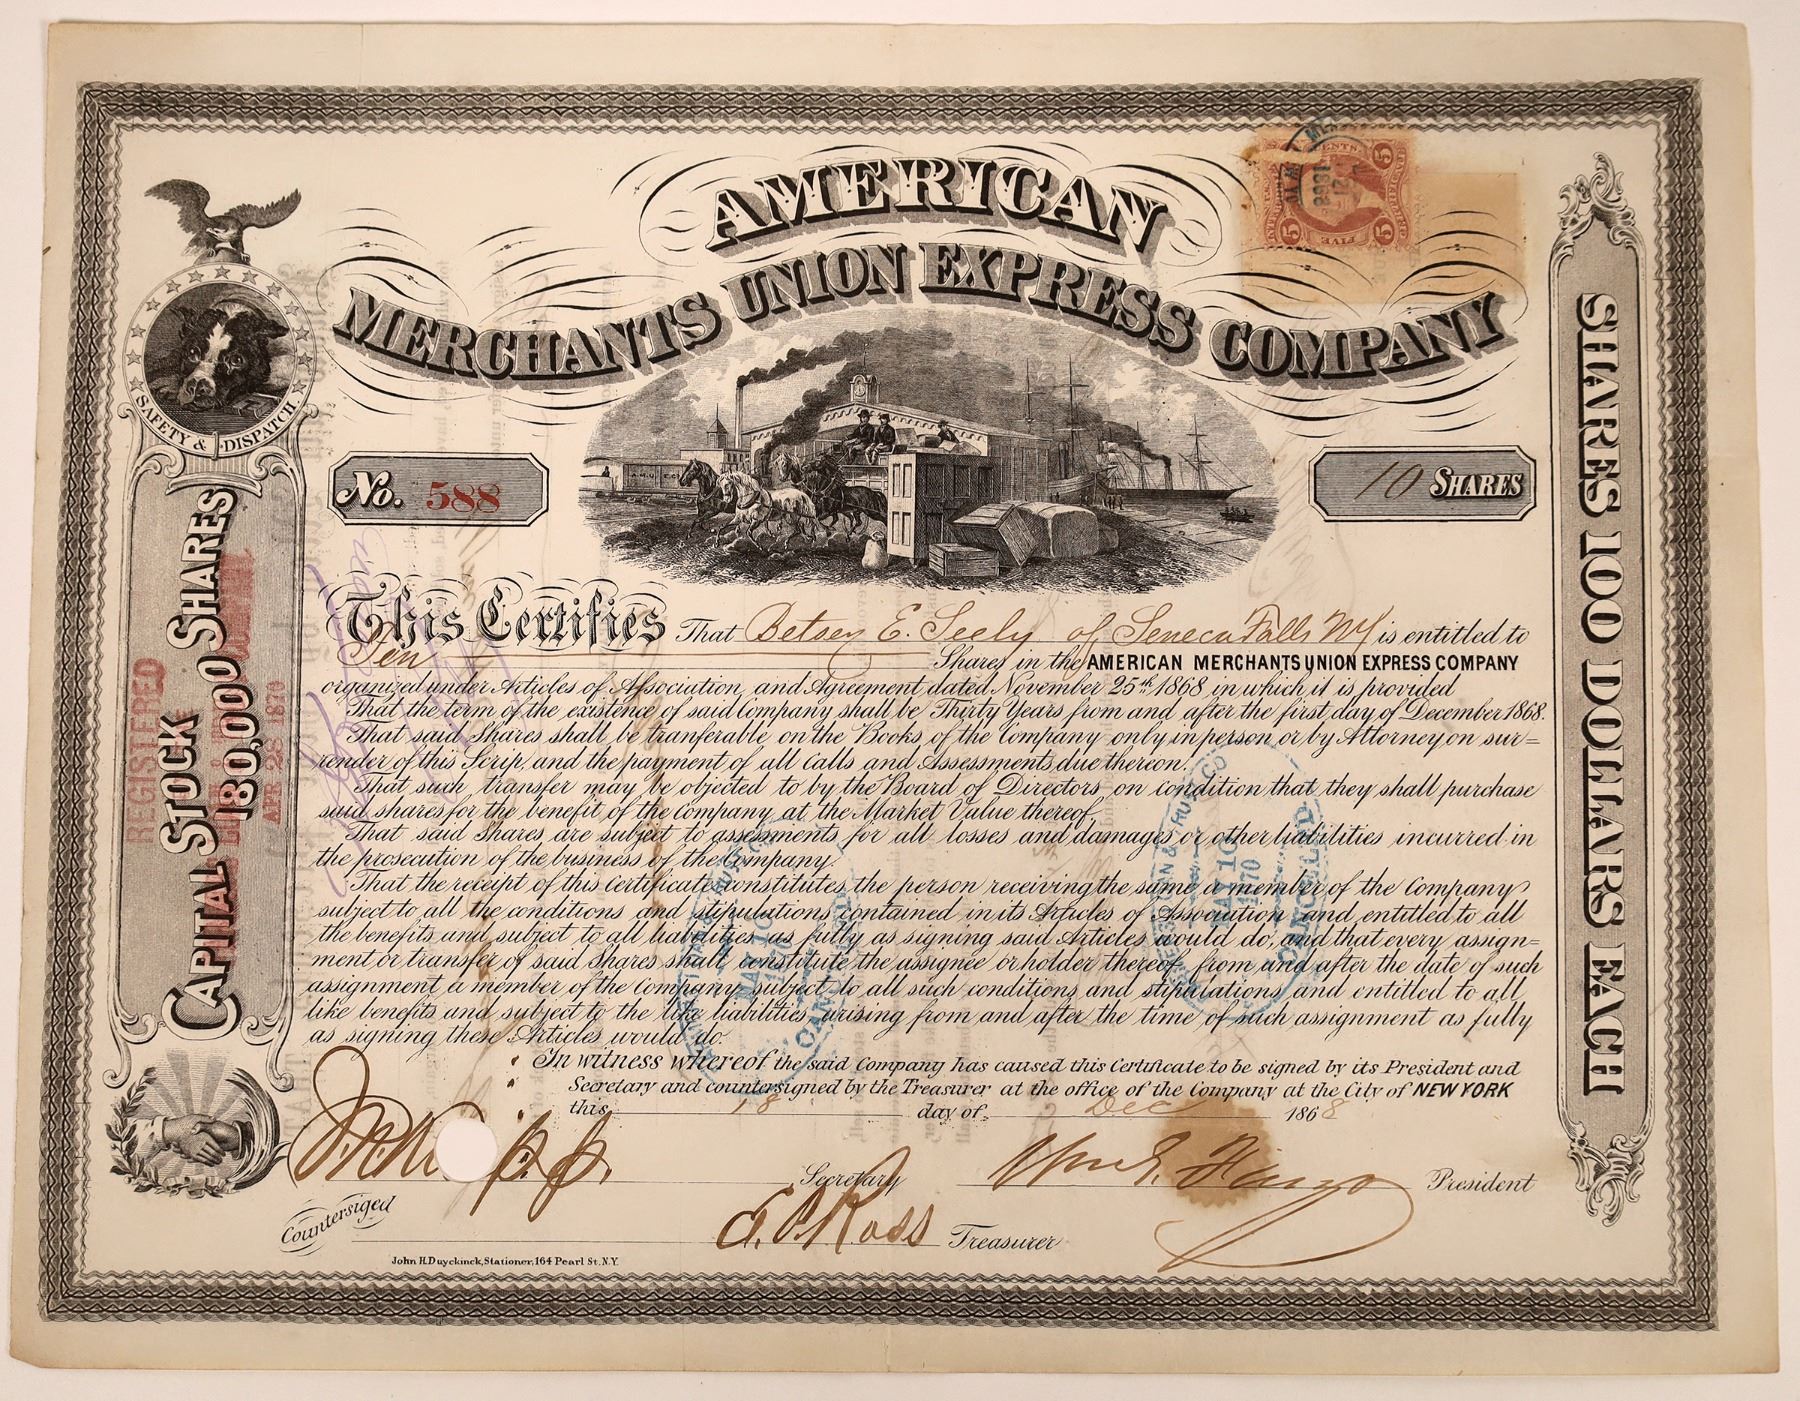 AMERICAN
MERCHANTS UNION EXPRESS COMPANY
SAFETY & DISPATCH
CAPITAL STOCK
180,000 SHARES
REGISTERED
APR 26 1870
SHARES 100 DOLLARS EACH
5 CENTS 5
5 FIVE 5
1868
No. 588
10 SHARES
This Certifies That Betsey E. Seely of Seneca Falls NY is entitled to
Ten Shares in the AMERICAN MERCHANTS UNION EXPRESS COMPANY
organized under Articles of Association, and Agreement dated November 25th 1868 in which it is provided
That the term of the existence of said Company shall be Thirty Years from and after the first day of December 1868.
That said Shares shall be tranferable on the Books of the Company only in person or by Attorney on sur=
render of this Scrip, and the payment of all Calls and Assessments due thereon.
That such transfer may be objected to by the Board of Directors on condition that they shall purchase
said shares for the benefit of the company at the Market Value thereof.
That said Shares are subject to assessments for all losses and damages or other liabilities incurred in
the prosecution of the business of the Company.
That the receipt of this Certificate constitutes the person receiving the same, a member of the Company
subject to all the conditions and stipulations contained in its Articles of Association and entitled to all
the benefits and subject to all liabilities as fully as signing said Articles would do, and that every assign=
ment or transfer of said Shares shall constitute the assignee or holder thereof, from and after the date of such
assignment a member of the Company subject to all such conditions and stipulations and entitled to all
like benefits and subject to the like liabilities arising from and after the time of such assignment as fully
as signing these Articles would do.
In witness whereof the said Company has caused this Certificate to be signed by its President and
Secretary and countersigned by the Treasurer at the office of the Company at the City of NEW YORK
this 18 day of Dec 1868
Secretary
Wm G. Fargo President
Countersiged
Treasurer
John H. Duyckinck, Stationer, 164 Pearl St. N.Y.
MAR 10
1870